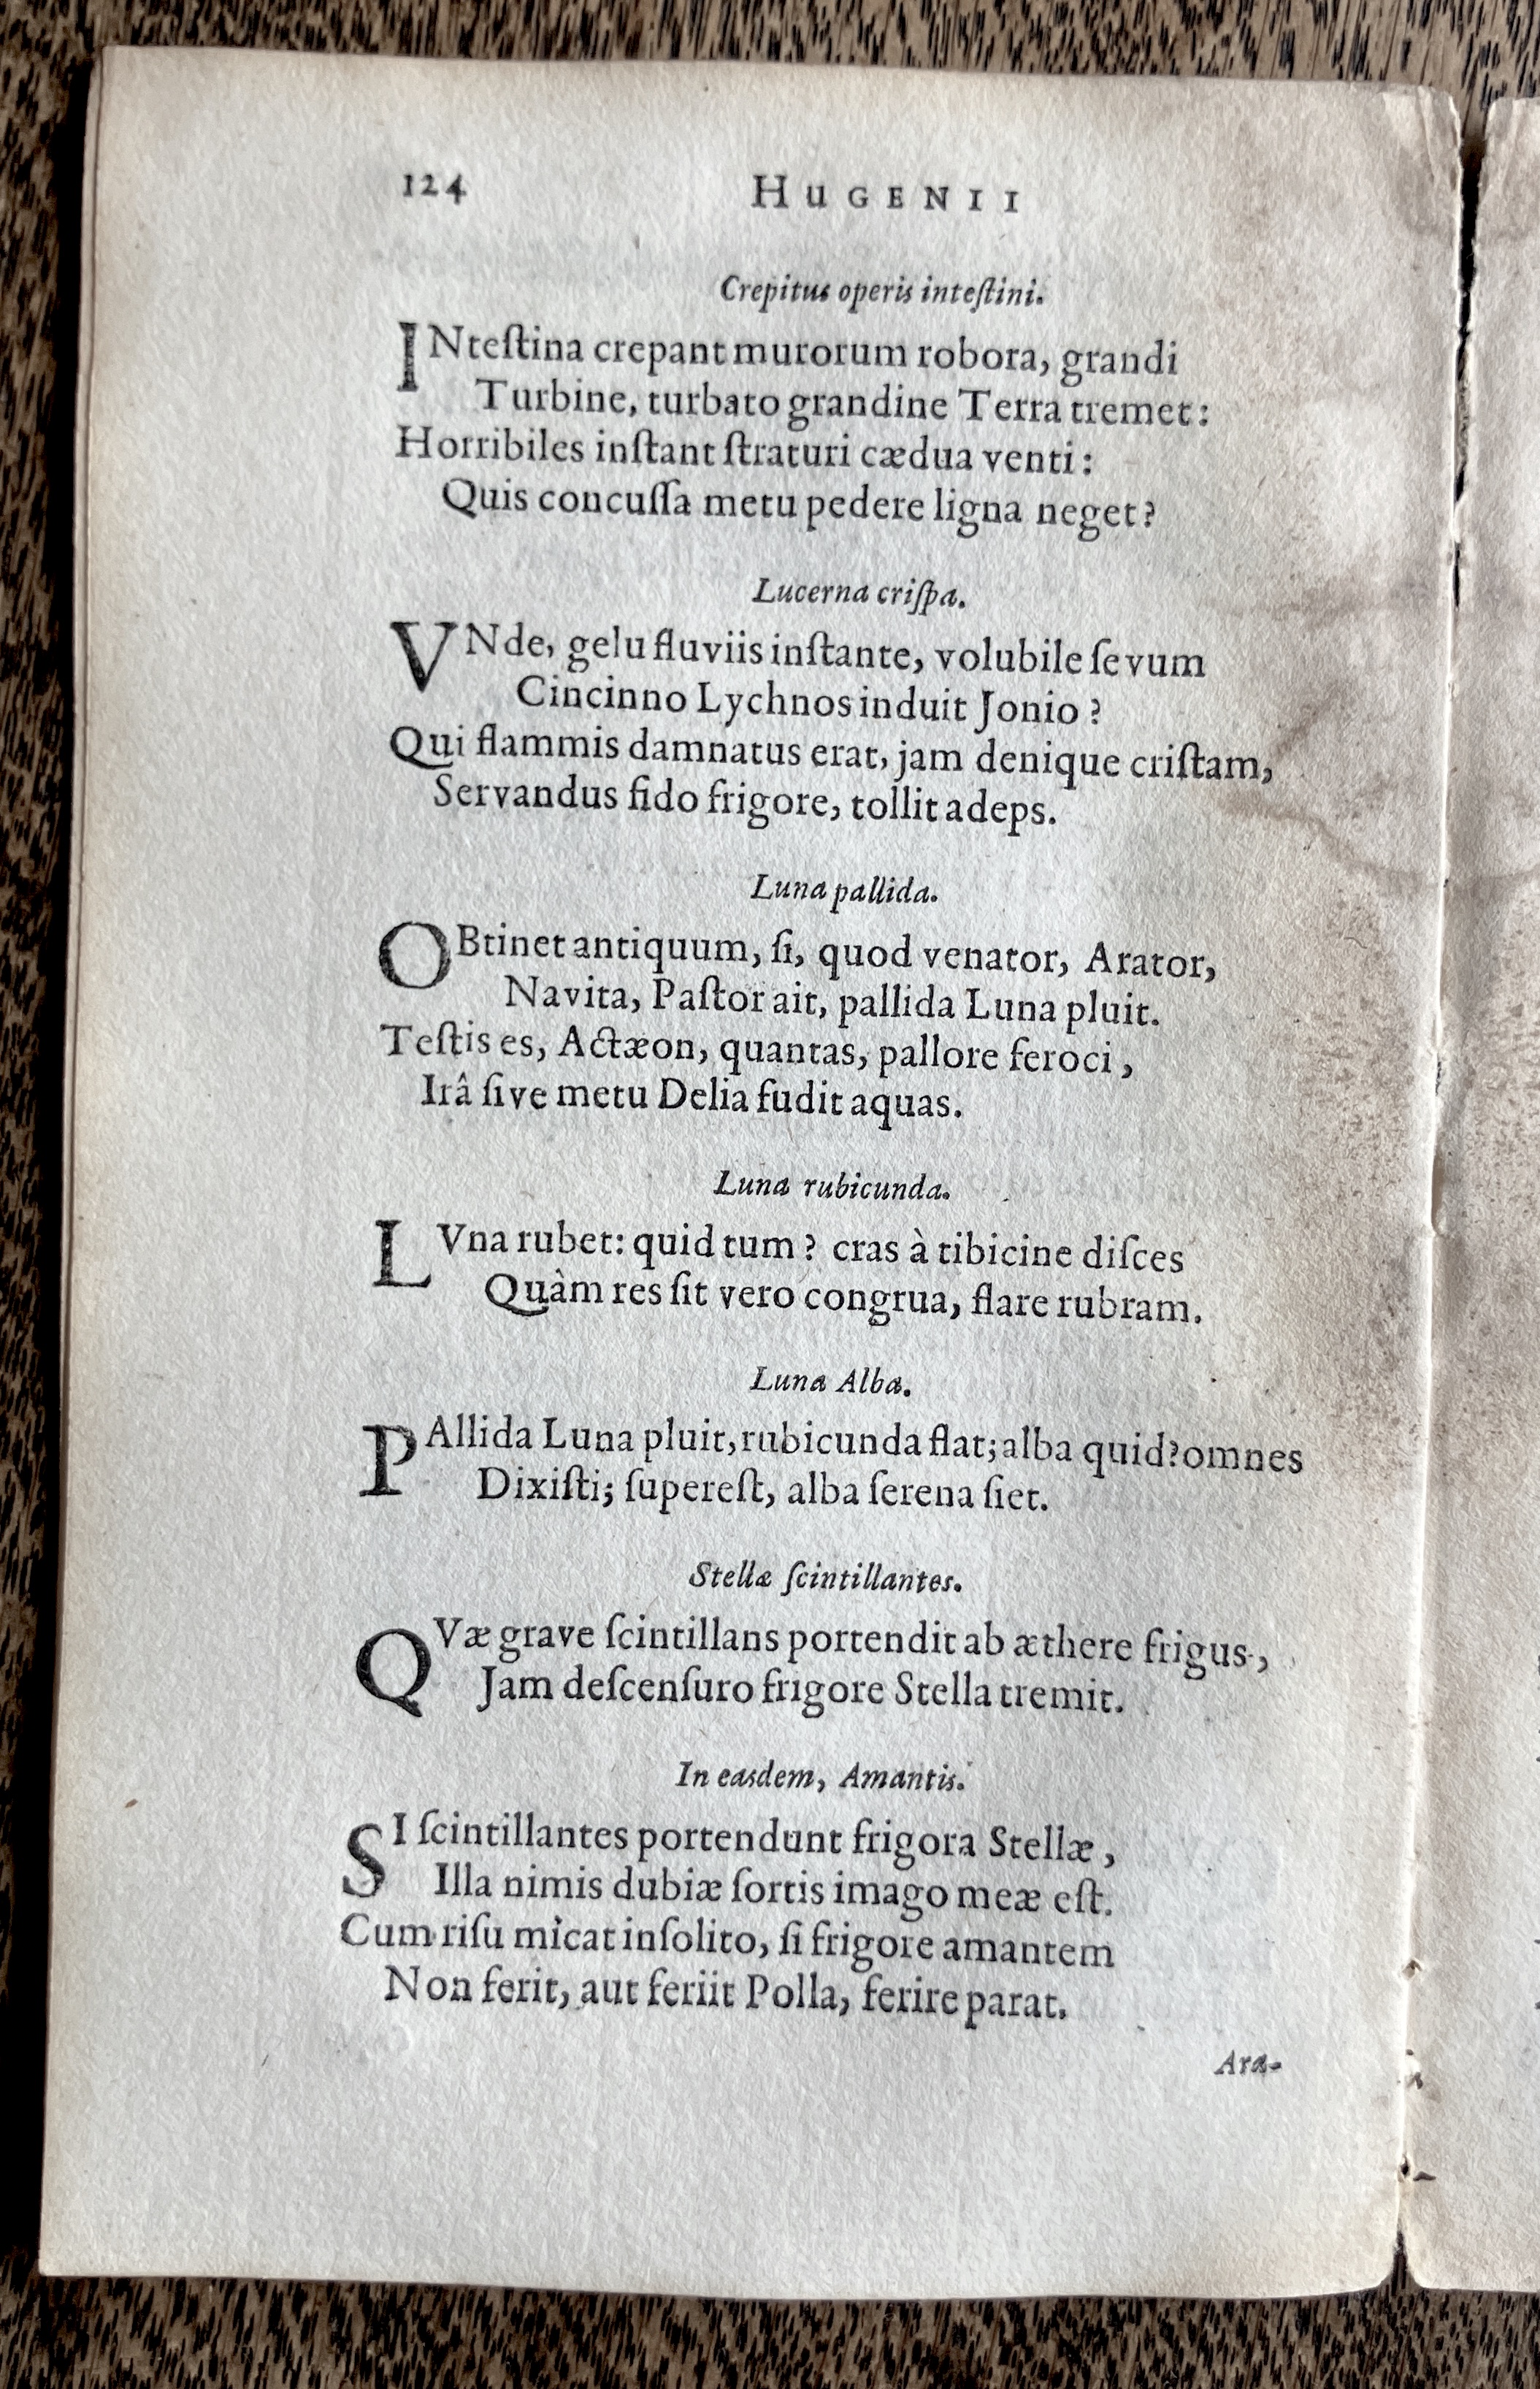 124 HuGENII
Crepitus operis inteſtini.
INteſtina crepant murorum robora, grandi
Turbine, turbato grandine Terra tremet:
Horribiles inſtant ſtraturi cædua venti:
Quis concuſſa metu pedere ligna neget?
Lucerna criſpa.
VNde, gelu fluviis inſtante, volubile ſevum
Cincinno Lychnos induit Jonio?
Qui flammis damnatus erat, jam denique criſtam,
Servandus fido frigore, tollit adeps.
Luna pallida.
OBtinet antiquum, ſi, quod venator, Arator,
Navita, Paſtor ait, pallida Luna pluit.
Teſtis es, Actæon, quantas, pallore feroci,
Irâ ſive metu Delia fudit aquas.
Luna rubicunda.
LVna rubet: quid tum? cras à tibicine diſces
Quàm res ſit vero congrua, flare rubram.
Luna Alba.
PAllida Luna pluit, rubicunda flat; alba quid? omnes
Dixiſti; ſupereſt, alba ſerena ſiet.
Stellæ ſcintillantes.
QVæ grave ſcintillans portendit ab æthere frigus,
Jam deſcenſuro frigore Stella tremit.
In easdem, Amantis.
SI ſcintillantes portendunt frigora Stellæ,
Illa nimis dubiæ ſortis imago meæ eſt.
Cum riſu micat inſolito, ſi frigore amantem
Non ferit, aut feriit Polla, ferire parat.
Ara-